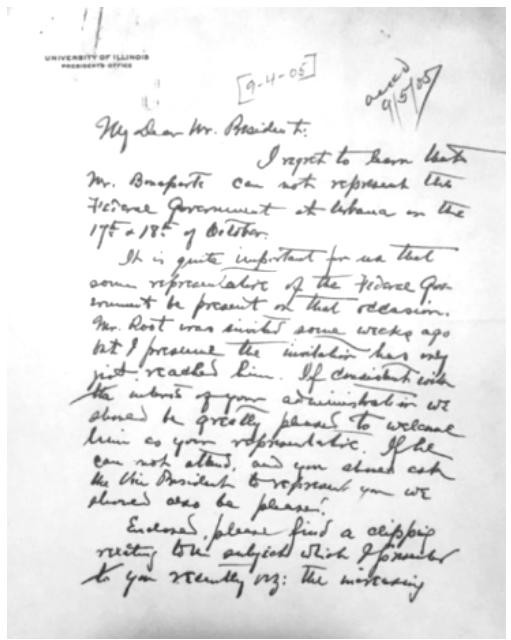 UNIVERSITY OF ILLINOIS
PRESIDENT'S OFFICE
[9-4-05]
ackd
9/5/05
My Dear Mr. President:
I regret to learn that
Mr. Bonaparte can not represent the
Federal Government at Urbana on the
17th & 18th of October.
It is quite important for us that
some representative of the Federal Gov-
ernment be present on that occasion.
Mr. Root was invited some weeks ago
but I presume the invitation has only
just reached him. If consistent with
the interests of your administration we
should be greatly pleased to welcome
him as your representative. If he
can not attend, and you should ask
the Vice President to represent you we
should also be pleased.
Enclosed, please find a clipping
relating to the subject which I presented
to you recently viz: the increasing